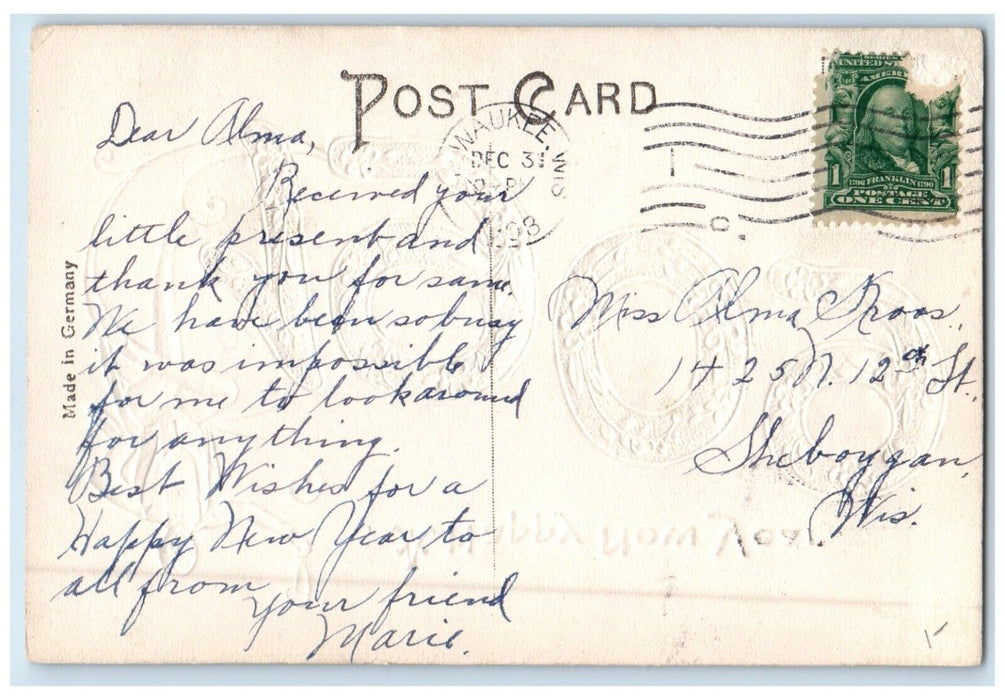 POST CARD
MILWAUKEE, WIS
DEC 31
1908
UNITED STATES
AMERICA
1706 FRANKLIN 1790
1 POSTAGE 1
ONE CENT
Made in Germany
Dear Alma,
Received your
little present and
thank you for same.
We have been so busy
it was impossible
for me to look around
for anything.
Best Wishes for a
Happy New Year to
all from
your friend
Marie.
Miss Alma Kroos,
1425 N. 12th St.,
Sheboygan,
Wis.
A Happy New Year